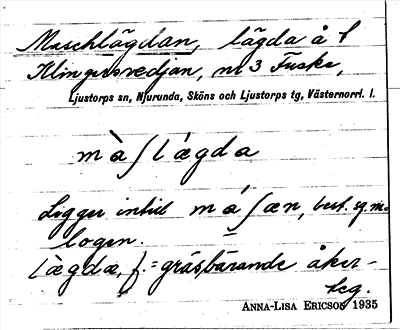 Maschlägdan, lägda å f
Klingersvedjan, nr 3 Fuske,
Ljustorps sn, Njurunda, Sköns och Ljustorps tg, Västernorrl. l.
màʃlǽgda
Ligger intill máʃæn, best. sg. m.
logen.
lægda, f. = gräsbärande åker-
teg.
ANNA-LISA ERICSON 1935